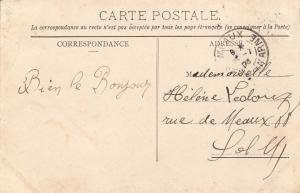 CARTE POSTALE.
La correspondance au recto n'est pas acceptée par tous les pays étrangers (se renseigner à la Poste)
CORRESPONDANCE
ADRESSE
Bien le Bonjour
Mademoiselle
Hélène Ledouz
rue de Meaux